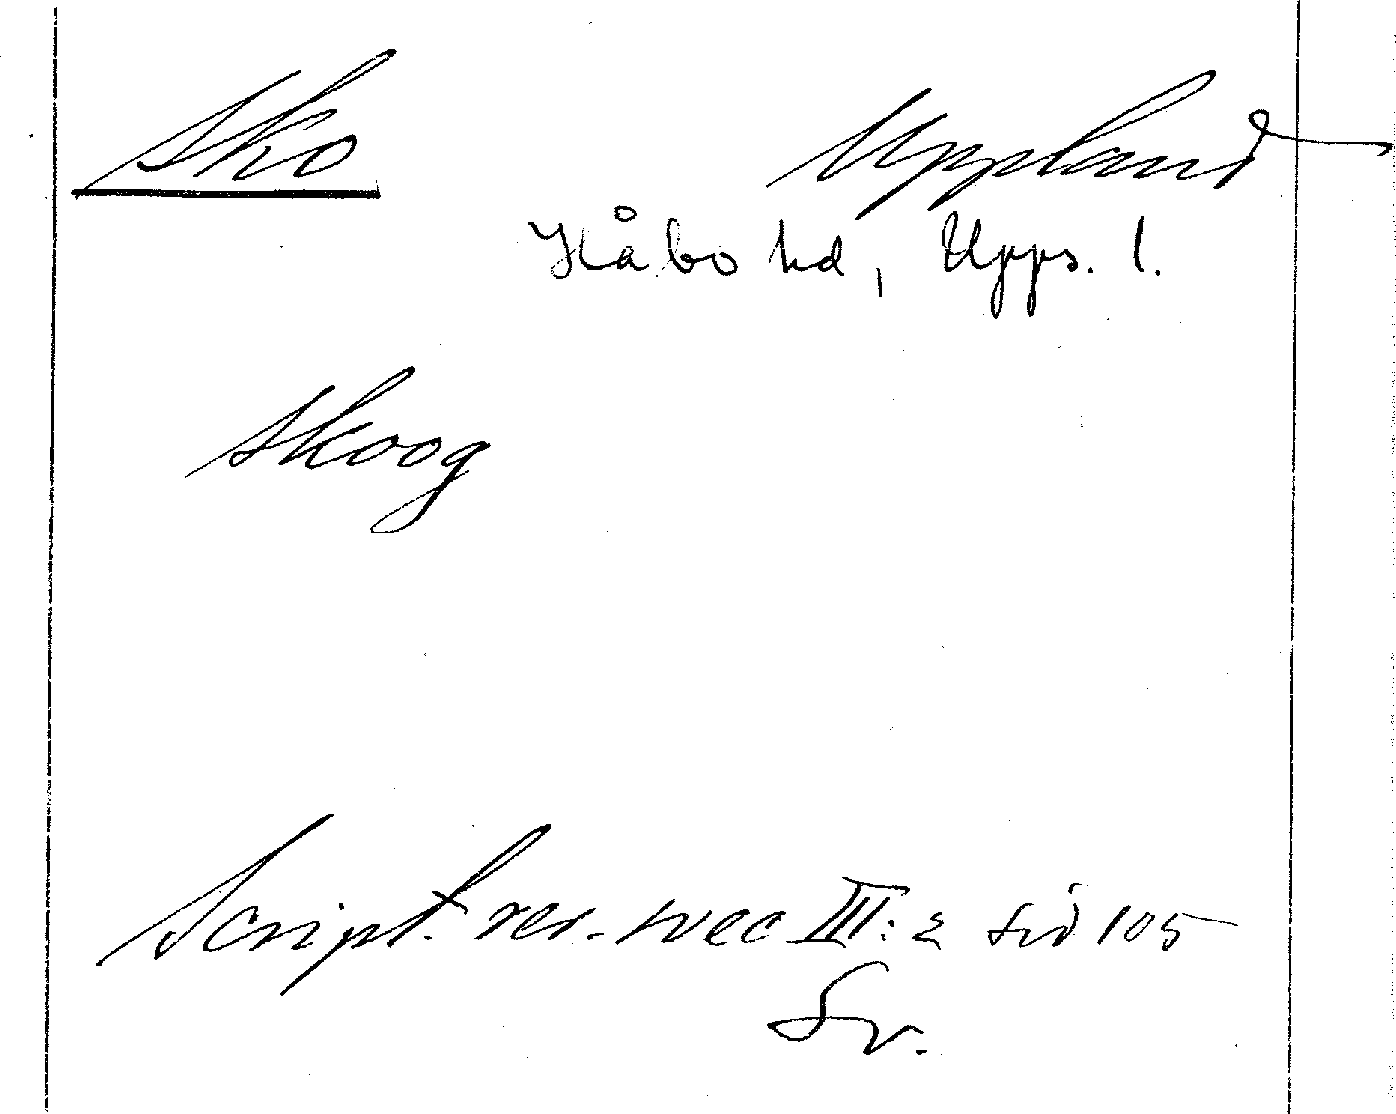 Sko Uppland
Håbo hd, Upps. l.
Skoog
Script. rer. svec III: 2 sid 105
Sv.